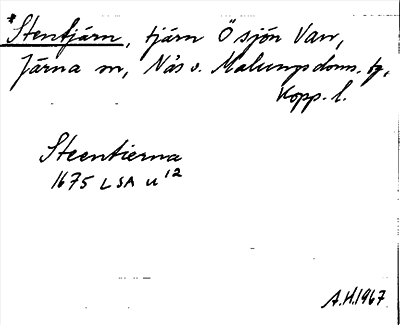 *Stentjärn, tjärn Ö sjön Van,
Järna sn, Nås o. Malungs doms. tg,
Kopp. l.
Steentierna
1675 LSA U 12
A.H. 1967